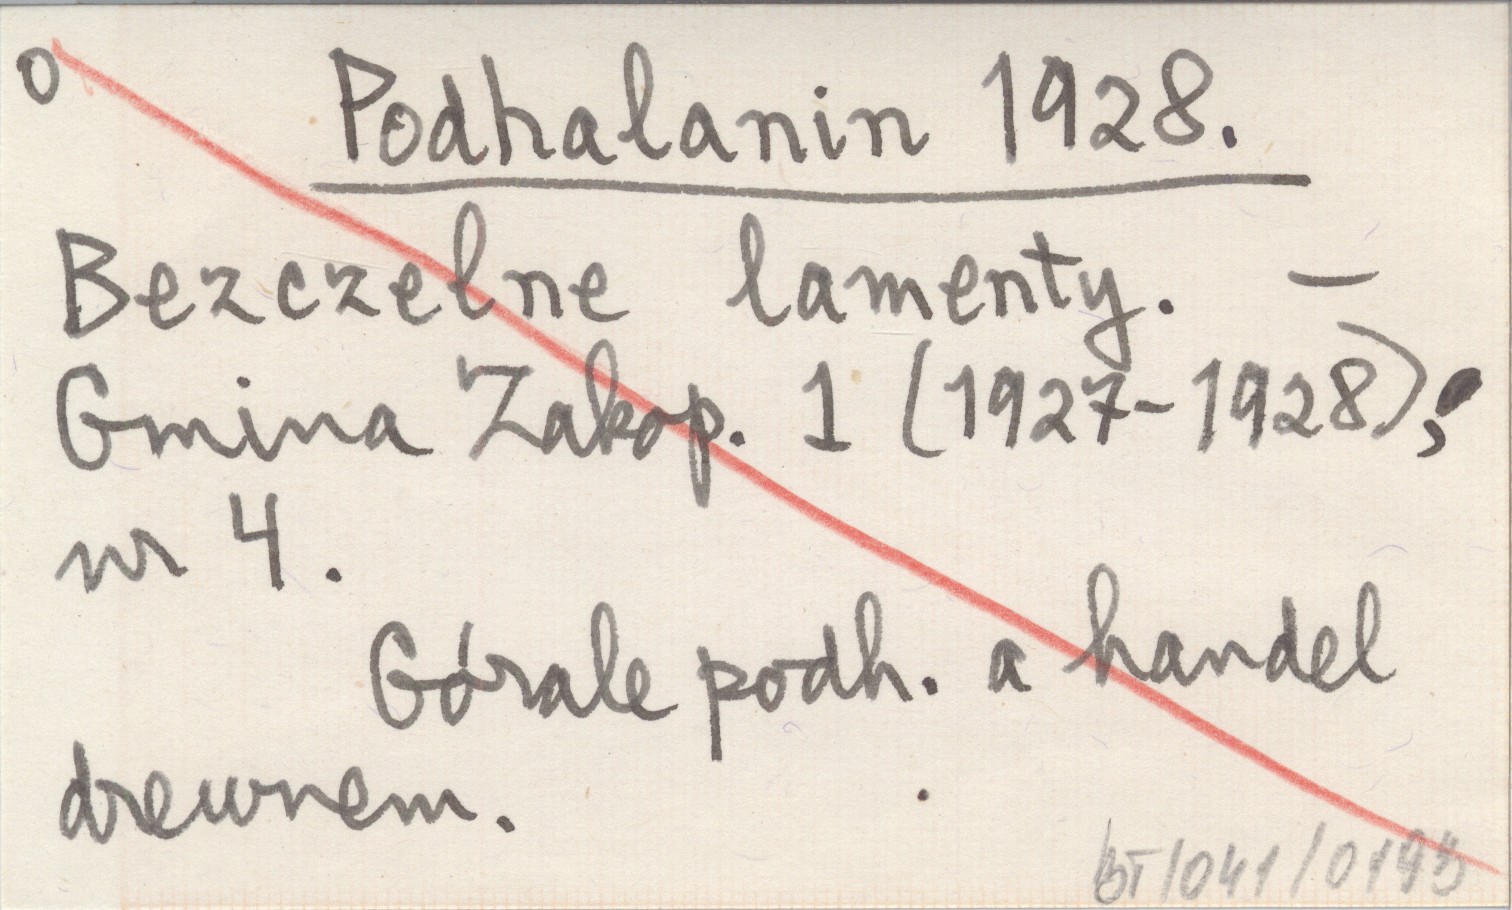 o
Podhalanin 1928.
Bezczelne lamenty. —
Gmina Zakop. 1 (1927-1928);
nr 4.
Górale podh. a handel
drewnem.